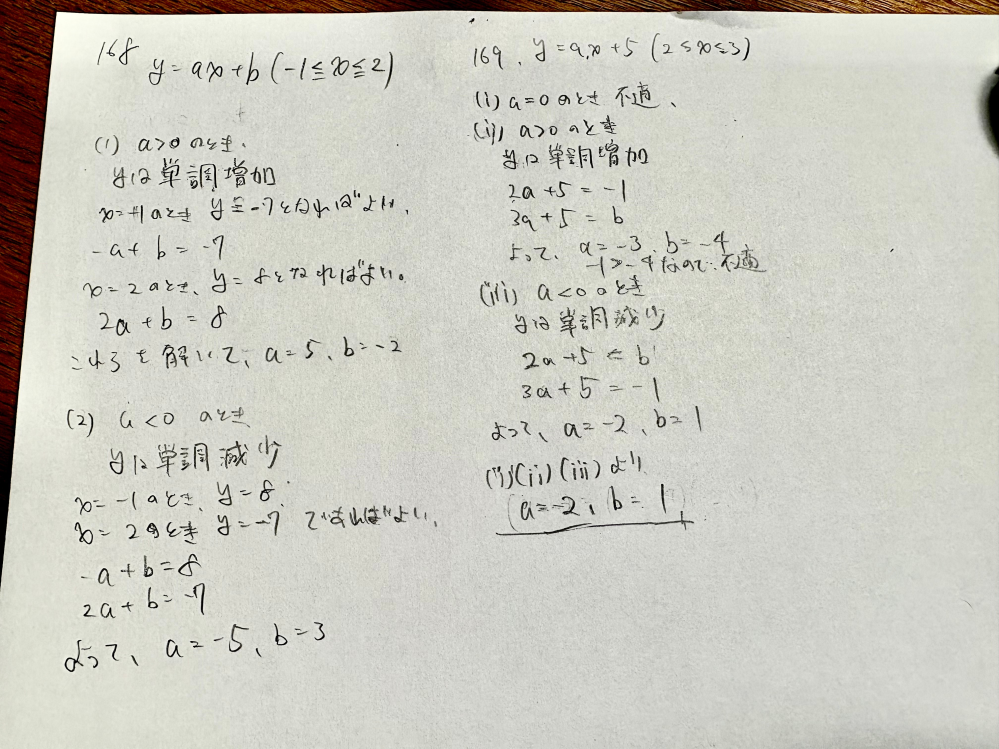 168
y = ax + b (-1 ≦ x ≦ 2)
(1) a>0 のとき、
yは単調増加
x = -1 のとき y = -7 となればよい、
-a + b = -7
x = 2 のとき、y = 8 となればよい。
2a + b = 8
これらを解いて、a = 5、b = -2
(2) a < 0 のとき
yは単調減少
x = -1 のとき、y = 8
x = 2 のとき y = -7 であればよい、
-a + b = 8
2a + b = -7
よって、a = -5、b = 3
169、y = ax + 5 (2 ≦ x ≦ 3)
(i) a = 0 のとき 不適、
(ii) a>0 のとき
yは単調増加
2a + 5 = -1
3a + 5 = b
よって、a = -3、b = -4
-1 > -4 なので、不適
(iii) a < 0 のとき
yは単調減少
2a + 5 = b
3a + 5 = -1
よって、a = -2、b = 1
(i)(ii)(iii) より
a = -2、b = 1